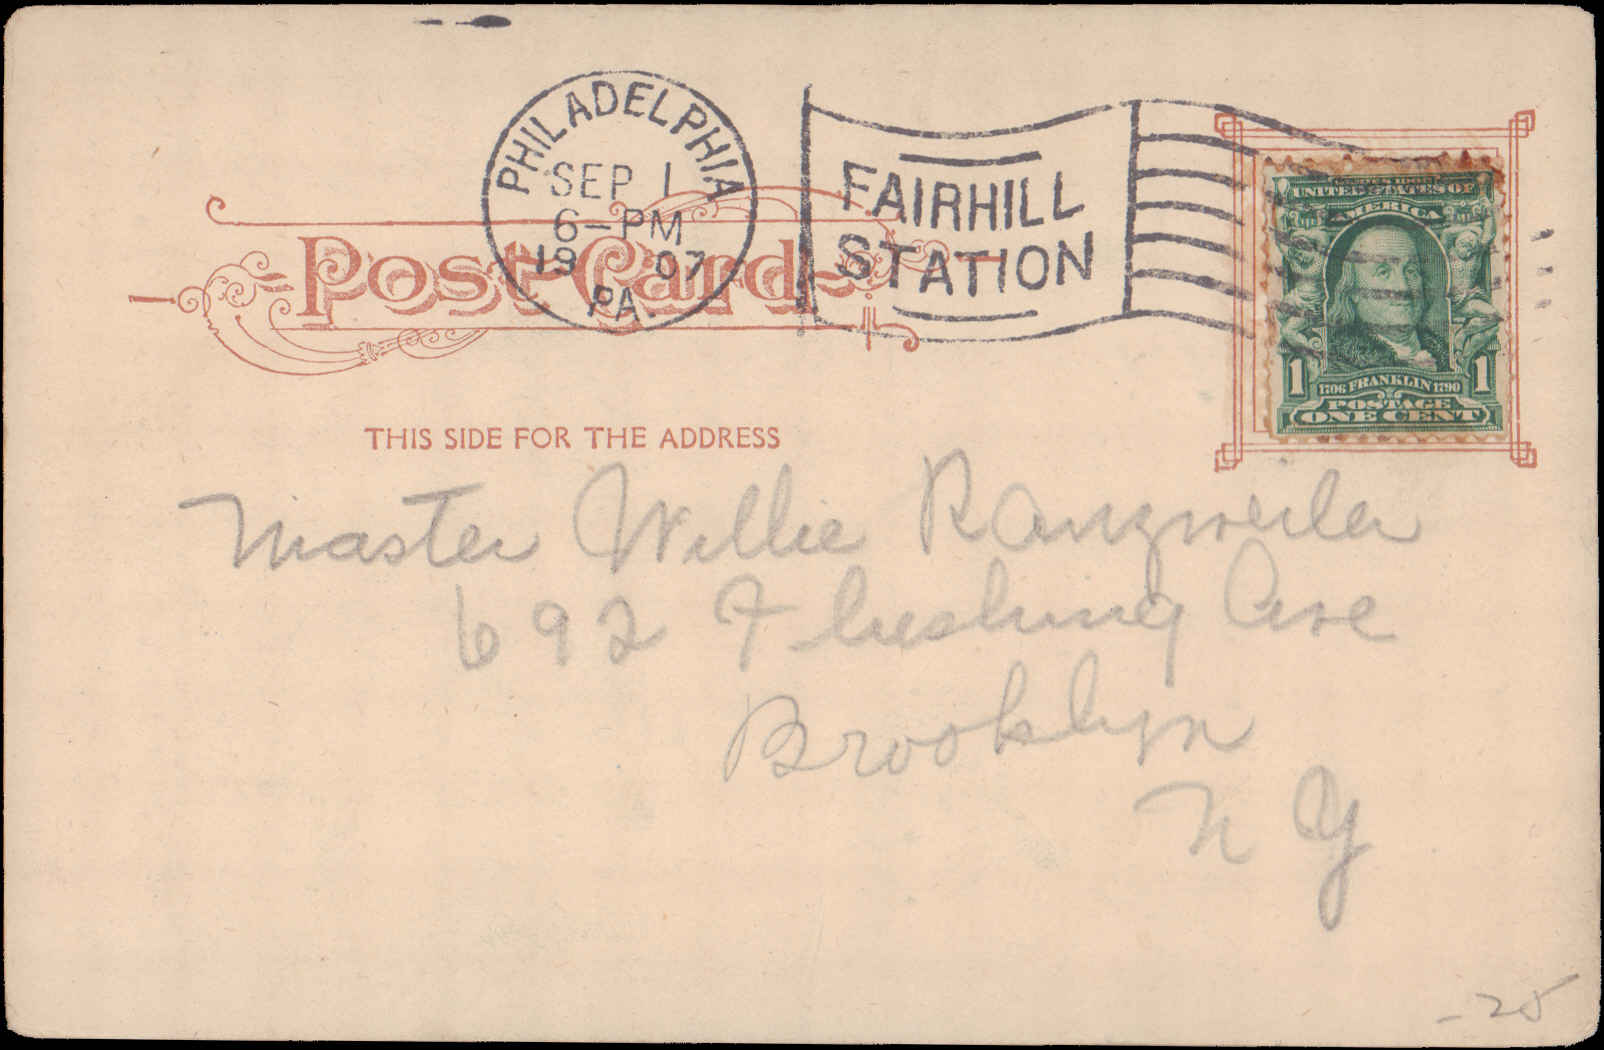 PHILADELPHIA
SEP 1
6-PM
1907
PA.
FAIRHILL
STATION
Post Card
SERIES 1902
UNITED STATES OF
AMERICA
1 1706 FRANKLIN 1790 1
POSTAGE
ONE CENT
THIS SIDE FOR THE ADDRESS
Master Willie Ranzweiler
692 Flushing Ave
Brooklyn
N Y
-25